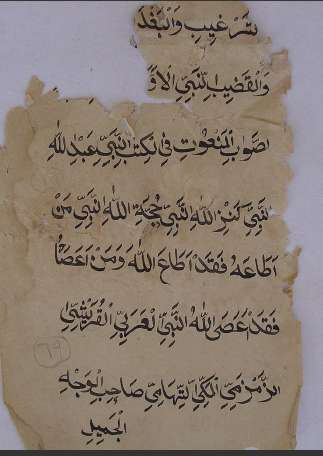 شر غيب والبغد
والقضيب النبي الاو
اصواب المنعوت في الكتب النبي عبد الله
النبي كنز الله النبي حجة الله النبي من
اطاعه فقد اطاع الله ومن اعصا
فقد اعصى الله النبي العربي القريشي
الزمزمي المكي التهامي صاحب الوجه
الجميل
٦٩